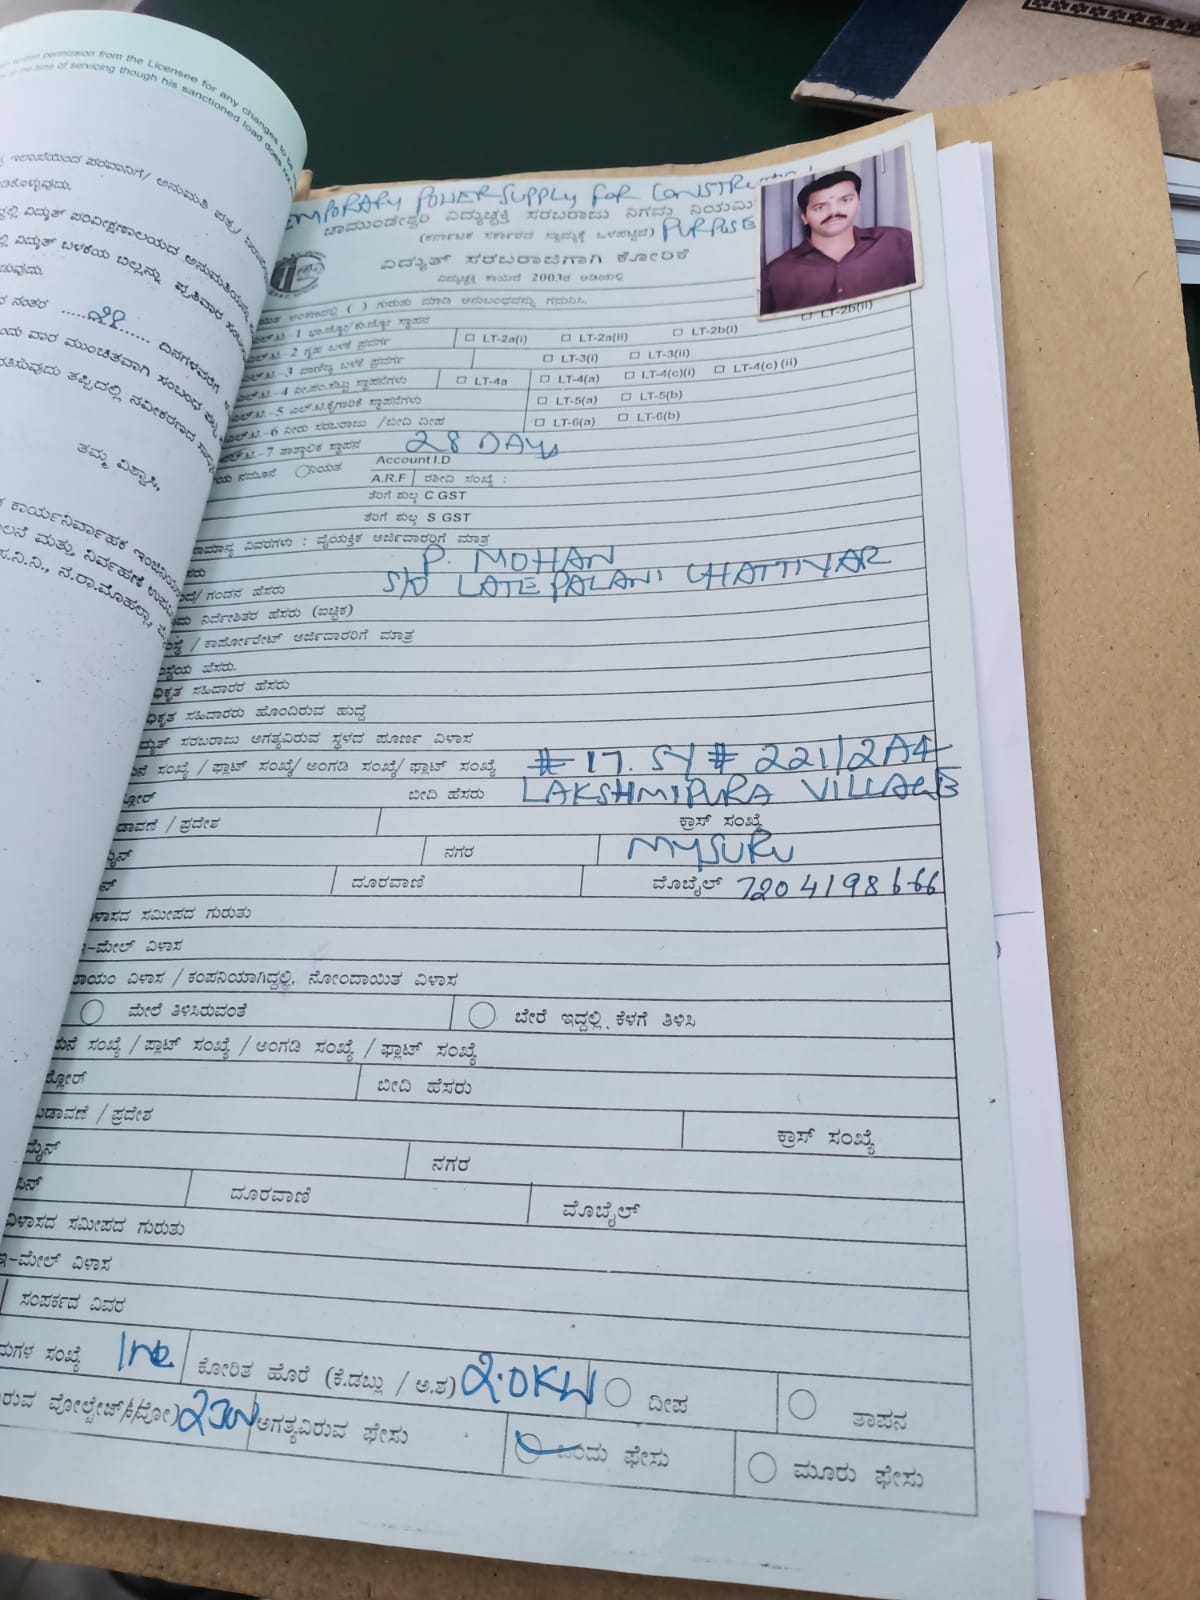 written permission from the Licensee for any changes to be
at the time of servicing though his sanctioned load does
ಇಲಾಖೆಯಿಂದ ಪರವಾನಿಗೆ/ ಅನುಮತಿ ಪತ್ರ/
ವಿದ್ಯುತ್ ಪರಿವೀಕ್ಷಣಾಲಯದ ಅನುಮತಿಯನ್ನು
ವಿದ್ಯುತ್ ಬಳಕೆಯ ಬಿಲ್ಲನ್ನು ಪ್ರತಿವಾರ
ನಂತರ ...... 28 ...... ದಿನಗಳವರೆಗೆ
ವಾರ ಮುಂಚಿತವಾಗಿ ಸಂಬಂಧ
ತಪ್ಪಿದಲ್ಲಿ ನವೀಕರಣದ
ತಮ್ಮ ವಿಶ್ವಾಸಿ,
ಕಾರ್ಯನಿರ್ವಾಹಕ ಇಂಜಿನಿಯರ್
ಮತ್ತು ನಿರ್ವಹಣೆ
ನ.ರಾ.ಮೊಹಲ್ಲಾ,
TEMPORARY POWER SUPPLY FOR CONSTRUCTION
ಚಾಮುಂಡೇಶ್ವರಿ ವಿದ್ಯುಚ್ಛಕ್ತಿ ಸರಬರಾಜು ನಿಗಮ ನಿಯಮಿ
(ಕರ್ನಾಟಕ ಸರ್ಕಾರದ ಸ್ವಾಮ್ಯಕ್ಕೆ ಒಳಪಟ್ಟಿದೆ) PURPOSE
ವಿದ್ಯುತ್ ಸರಬರಾಜಿಗಾಗಿ ಕೋರಿಕೆ
ವಿದ್ಯುಚ್ಛಕ್ತಿ ಕಾಯಿದೆ 2003ರ ಅಡಿಯಲ್ಲಿ
ಅಂಕಣದಲ್ಲಿ ( ) ಗುರುತು ಮಾಡಿ ಅನುಬಂಧವನ್ನು ಗಮನಿಸಿ.
ಎಲ್.ಟಿ.-1 ಭಾ.ಜ್ಯೋ/ಕು.ಜ್ಯೋ ಸ್ಥಾಪನ
ಎಲ್.ಟಿ.-2 ಗೃಹ ಬಳಕೆ ಪ್ರವರ್ಗ □ LT-2a(i) □ LT-2a(ii) □ LT-2b(i) □ LT-2b(ii)
ಎಲ್.ಟಿ.-3 ವಾಣಿಜ್ಯ ಬಳಕೆ ಪ್ರವರ್ಗ □ LT-3(i) □ LT-3(ii)
ಎಲ್.ಟಿ.-4 ನೀ.ಪಂ.ಸೆಟ್ಟು ಸ್ಥಾಪನೆಗಳು □ LT-4a □ LT-4(a) □ LT-4(c)(i) □ LT-4(c) (ii)
ಎಲ್.ಟಿ.-5 ಎಲ್.ಟಿ.ಕೈಗಾರಿಕೆ ಸ್ಥಾಪನೆಗಳು □ LT-5(a) □ LT-5(b)
ಎಲ್.ಟಿ.-6 ನೀರು ಸರಬರಾಜು /ಬೀದಿ ದೀಪ □ LT-6(a) □ LT-6(b)
ಎಲ್.ಟಿ.-7 ತಾತ್ಕಾಲಿಕ ಸ್ಥಾಪನ 28 DAYS
ನಮೂನೆ Account I.D
A.R.F ರಶೀದಿ ಸಂಖ್ಯೆ :
ತೆರಿಗೆ ಶುಲ್ಕ C GST
ತೆರಿಗೆ ಶುಲ್ಕ S GST
ಸಾಮಾನ್ಯ ವಿವರಗಳು : ವೈಯಕ್ತಿಕ ಅರ್ಜಿದಾರರಿಗೆ ಮಾತ್ರ
P. MOHAN
ಗಂಡನ ಹೆಸರು S/O LATE PALANI CHATTIYAR
ನಿರ್ದೇಶಿತರ ಹೆಸರು (ಐಚ್ಛಿಕ)
/ ಕಾರ್ಪೋರೇಟ್ ಅರ್ಜಿದಾರರಿಗೆ ಮಾತ್ರ
ಸಂಸ್ಥೆಯ ಹೆಸರು.
ಅಧಿಕೃತ ಸಹಿದಾರರ ಹೆಸರು
ಅಧಿಕೃತ ಸಹಿದಾರರು ಹೊಂದಿರುವ ಹುದ್ದೆ
ವಿದ್ಯುತ್ ಸರಬರಾಜು ಅಗತ್ಯವಿರುವ ಸ್ಥಳದ ಪೂರ್ಣ ವಿಳಾಸ
ಮನೆ ಸಂಖ್ಯೆ / ಫ್ಲಾಟ್ ಸಂಖ್ಯೆ/ ಅಂಗಡಿ ಸಂಖ್ಯೆ/ ಫ್ಲಾಟ್ ಸಂಖ್ಯೆ # 17. SY # 221/2A4
ಫ್ಲೋರ್ ಬೀದಿ ಹೆಸರು LAKSHMIPURA VILLAGE
ಬಡಾವಣೆ / ಪ್ರದೇಶ ಕ್ರಾಸ್ ಸಂಖ್ಯೆ
ಮೈನ್ ನಗರ MYSURU
ದೂರವಾಣಿ ಮೊಬೈಲ್ 7204198666
ವಿಳಾಸದ ಸಮೀಪದ ಗುರುತು
ಇ-ಮೇಲ್ ವಿಳಾಸ
ಖಾಯಂ ವಿಳಾಸ / ಕಂಪನಿಯಾಗಿದ್ದಲ್ಲಿ, ನೋಂದಾಯಿತ ವಿಳಾಸ
ಮೇಲೆ ತಿಳಿಸಿರುವಂತೆ ಬೇರೆ ಇದ್ದಲ್ಲಿ ಕೆಳಗೆ ತಿಳಿಸಿ
ಮನೆ ಸಂಖ್ಯೆ / ಪ್ಲಾಟ್ ಸಂಖ್ಯೆ / ಅಂಗಡಿ ಸಂಖ್ಯೆ / ಫ್ಲಾಟ್ ಸಂಖ್ಯೆ
ಫ್ಲೋರ್ ಬೀದಿ ಹೆಸರು
ಬಡಾವಣೆ / ಪ್ರದೇಶ ಕ್ರಾಸ್ ಸಂಖ್ಯೆ
ಮೈನ್ ನಗರ
ಪಿನ್ ದೂರವಾಣಿ ಮೊಬೈಲ್
ವಿಳಾಸದ ಸಮೀಪದ ಗುರುತು
ಇ-ಮೇಲ್ ವಿಳಾಸ
ಸಂಪರ್ಕದ ವಿವರ
ಸಂಖ್ಯೆ 1no ಕೋರಿತ ಹೊರೆ (ಕೆ.ಡಬ್ಲು / ಅ.ಶ) 2.0KW ದೀಪ ತಾಪನ
ವೋಲ್ಟೇಜ್ 230V ಅಗತ್ಯವಿರುವ ಫೇಸು ಒಂದು ಫೇಸು ಮೂರು ಫೇಸು